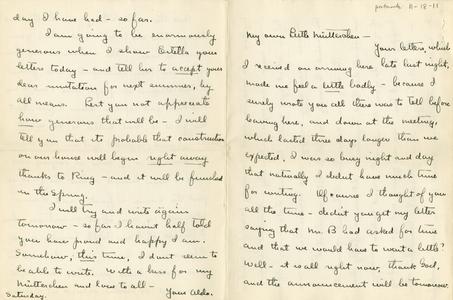 postmark 11-18-11
My own Little Mütterchen —
Your letters, which
I received on arriving here late last night,
made me feel a little badly — because I
surely wrote you all there was to tell before
leaving here, and down at the meeting,
which lasted three days longer than we
expected, I was so busy night and day
that naturally I didn't have much time
for writing. Of course I thought of you
all the time — didn't you get my letter
saying that Mr. B had asked for time
and that we would have to wait a little?
Well — it is all right now, thank God,
and the announcement will be tomorrow
day I have had — so far.
I am going to be enormously
generous when I show Estella your
letters today — and tell her to accept your
dear invitation for next summer, by
all means. But you not appreciate
how generous that will be — I will
tell you that its probable that construction
on our house will begin right away
thanks to Ring — and it will be finished
in the Spring.
I will try and write again
tomorrow — so far I haven't half told
you how proud and happy I am.
Somehow, this time, I don't seem to
be able to write. With a kiss for my
Mütterchen and love to all — Your Aldo.
Saturday.